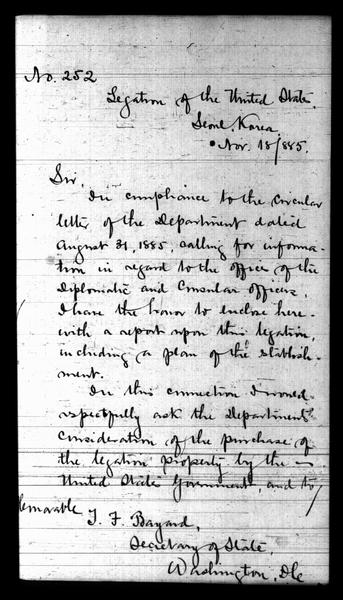 No. 252
Legation of the United States,
Seoul, Korea
Nov. 18/885.
Sir,
In compliance to the Circular
letter of the Department dated
August 31, 1885, calling for informa-
tion in regard to the offices of the
Diplomatic and Consular officers,
I have the honor to enclose here-
with a report upon this legation,
including a plan of the establish-
ment.
In this connection I would
respectfully ask the Department's
Consideration of the purchase of
the legation property by the
United States Government, and to
Honorable
T. F. Bayard,
Secretary of State,
Washington, D.C.